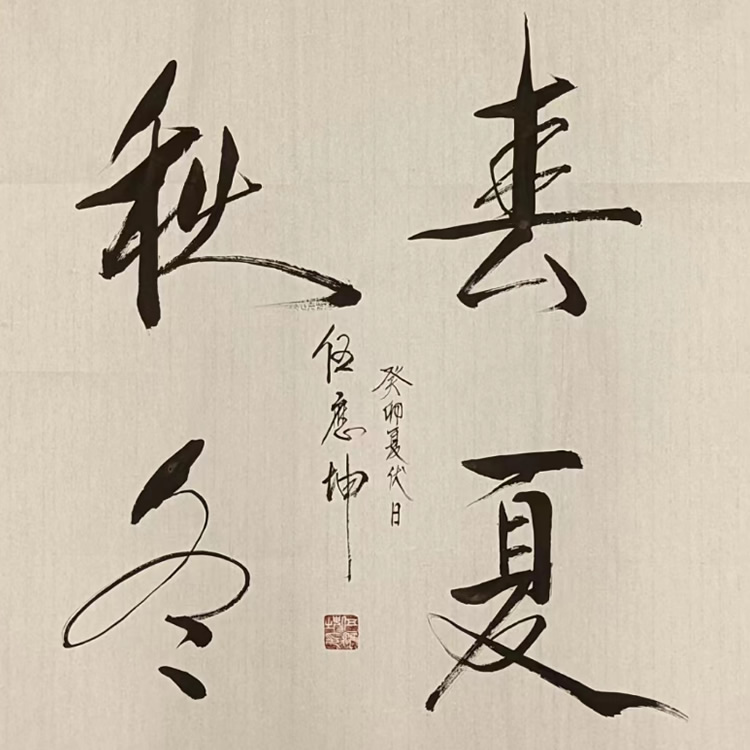 春夏
秋冬
癸卯夏伏日
伍應坤